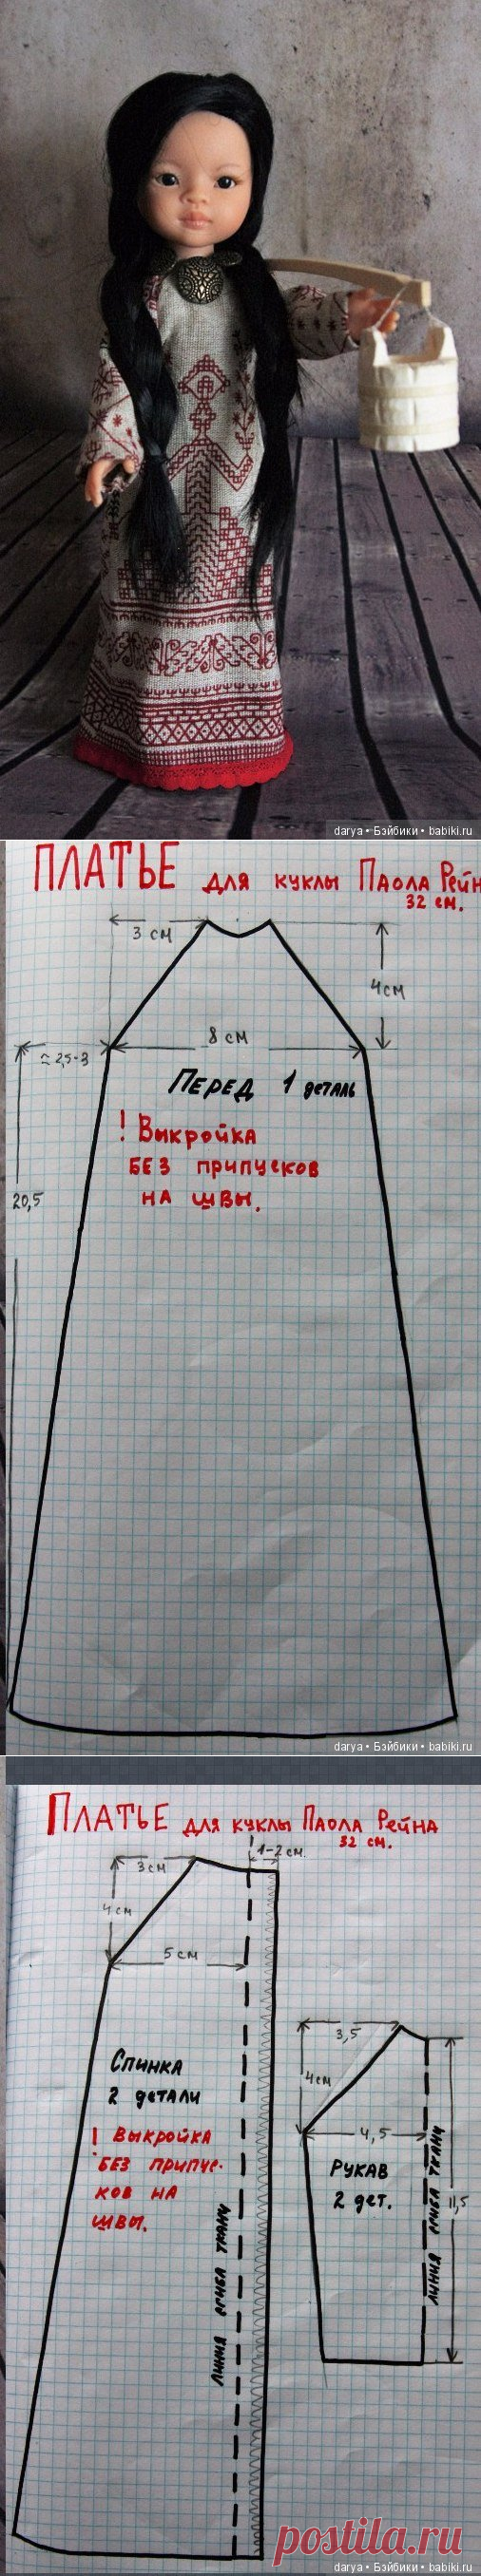 darya • Бэйбики • babiki.ru
ПЛАТЬЕ для куклы Паола Рейн
32 см.
3 см
4см
8 см
≈ 2,5-3
Перед 1 деталь
! Выкройка
БЕЗ припусков
НА швы.
20,5
darya • Бэйбики • babiki.ru
ПЛАТЬЕ для куклы Паола Рейна
32 см.
1-2 см.
3см
4см
5 см
3,5
4см
Спинка
2 детали
! Выкройка
БЕЗ припус-
ков на
швы.
4,5
Рукав
2 дет.
11,5
линия сгиба ткани
линия сгиба ткани
postila.ru
darya • Бэйбики • babiki.ru